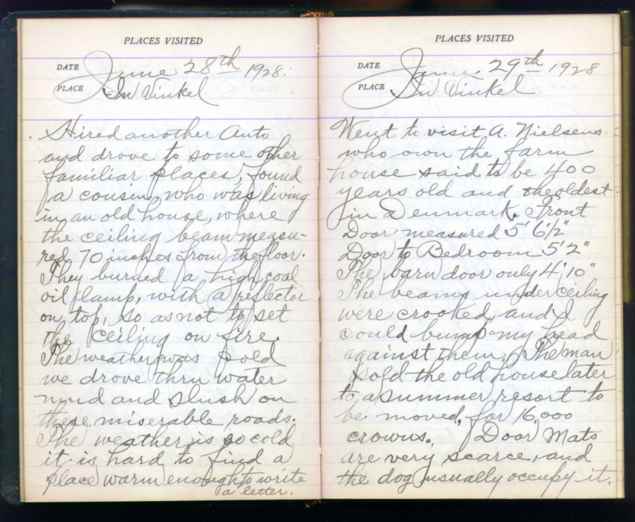 PLACES VISITED
DATE June 28th 1928.
PLACE In Vinkel
Hired another Auto
and drove to some other
familiar places, found
a cousin, who was living
in an old house, where
the ceiling beam measu-
red 70 inches from the floor.
They burned a high coal
oil lamp, with a reflector
on top, so as not to set
the ceiling on fire.
The weather was cold
we drove thru water
mud and slush on
these miserable roads.
The weather is so cold
it is hard to find a
place warm enough to write
a letter.
PLACES VISITED
DATE June 29th 1928
PLACE In Vinkel
Went to visit A. Nielsens
who own the farm
house said to be 400
years old and the oldest
in Denmark. Front
Door measured 5' 6 1/2"
Door to Bedroom 5' 2"
The barn door only 4' 10"
The beams under ceiling
were crooked and I
could bump my head
against them. The man
sold the old house later
to a summer resort to
be moved, for 16,000
crowns. Door Mats
are very scarce, and
the dog usually occupy it.